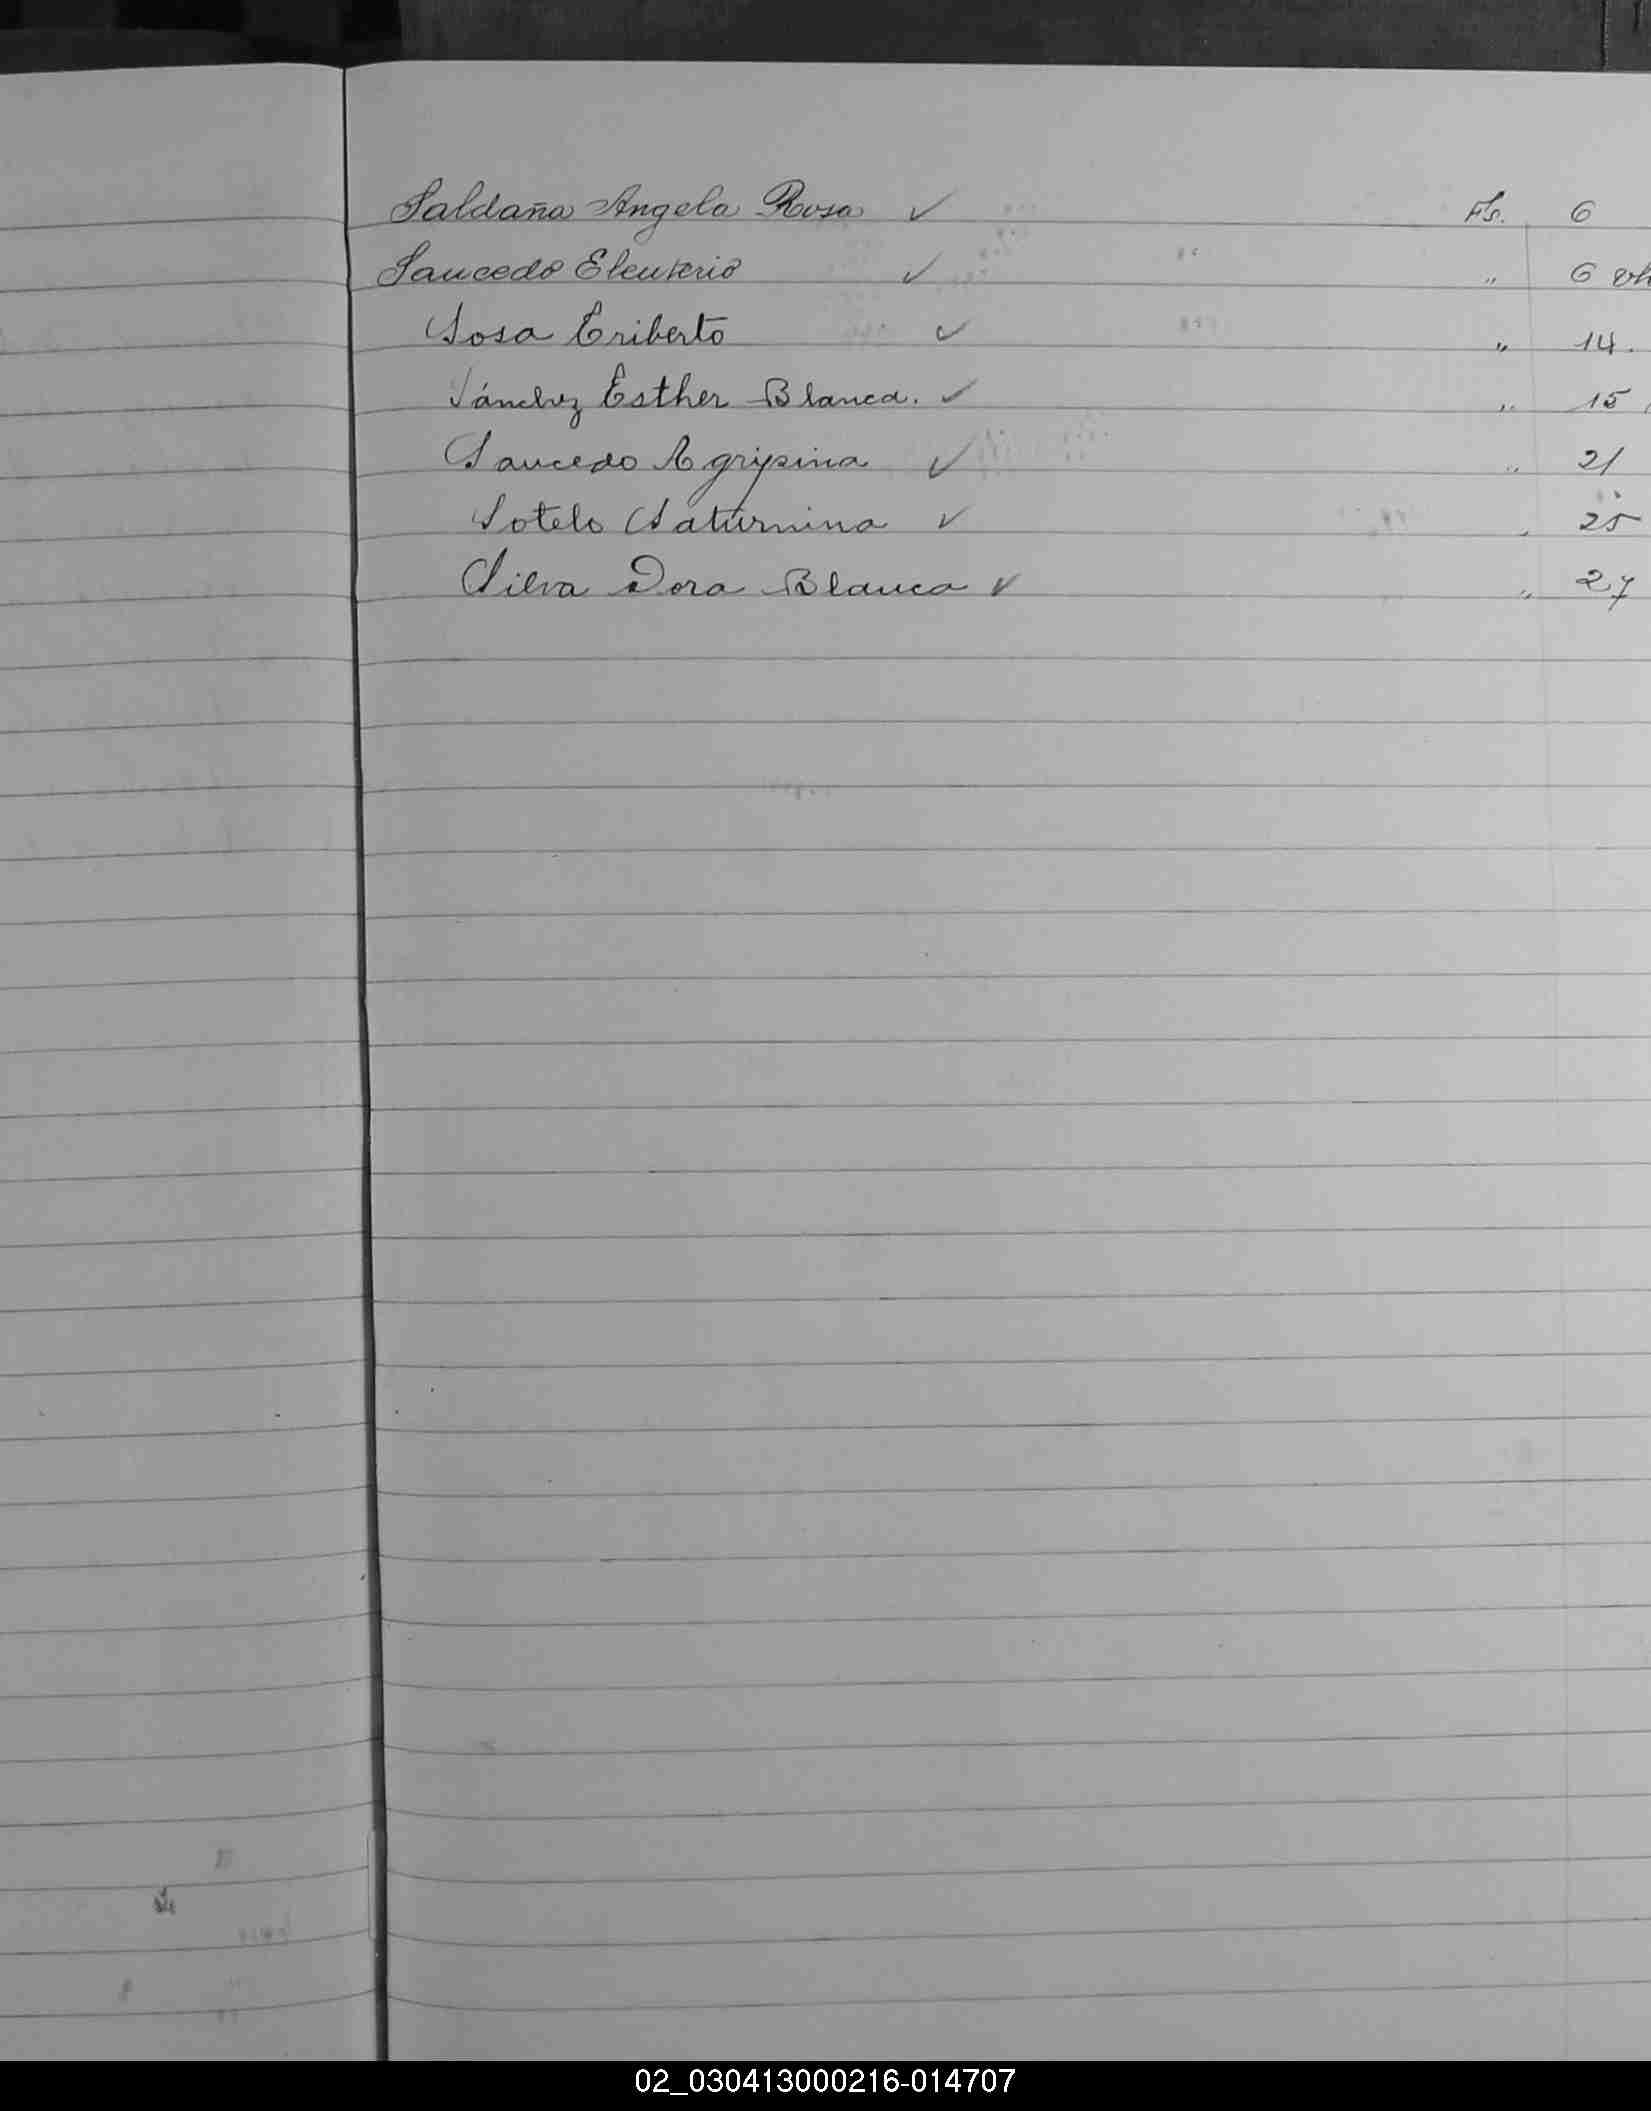 Saldaña Angela Rosa ✓ Fs. 6
Saucedo Eleuterio ✓ " 6 vh
Sosa Eriberto ✓ " 14.
Sánchez Esther Blanca. ✓ " 15
Saucedo Agripina ✓ " 21
Sotelo Saturnina ✓ " 25
Silva Dora Blanca ✓ " 27
02_030413000216-014707